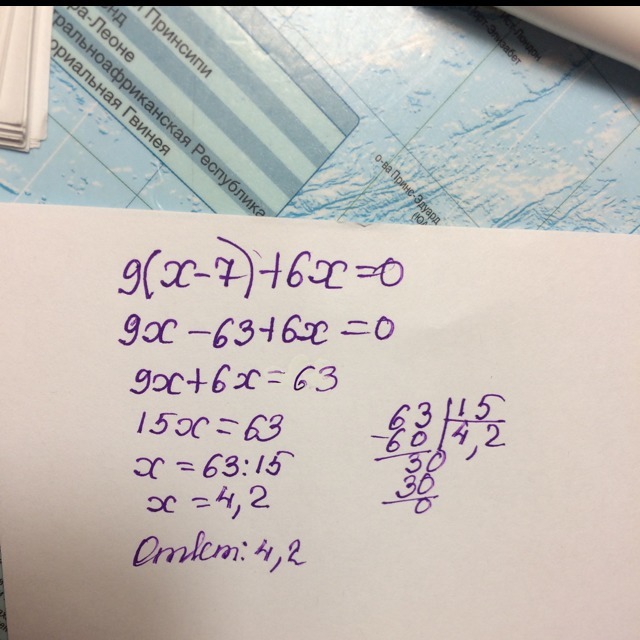 Принсипи
ра-Леоне
тральноафриканская Республика
ориальная Гвинея
о-ва Принс-Эдуард
(Ю
9(x-7)+6x=0
9x-63+6x=0
9x+6x=63
15x=63
x=63:15
x=4,2
Ответ: 4,2
63 | 15
-60 | 4,2
30
30
0